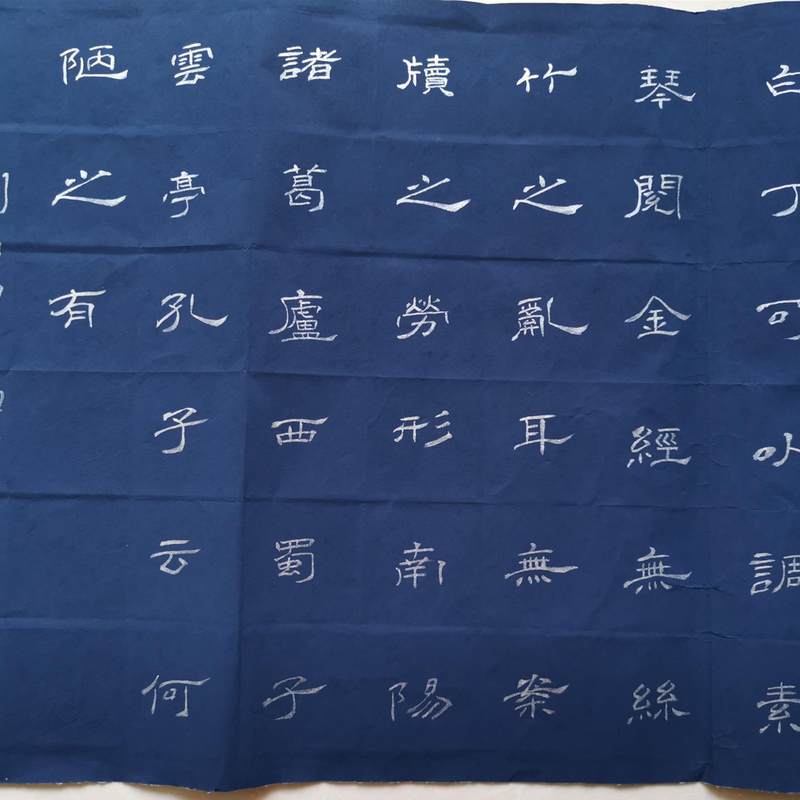 白丁可以調素
琴閱金經無絲
竹之亂耳無案
牘之勞形南陽
諸葛廬西蜀子
雲亭孔子云何
陋之有